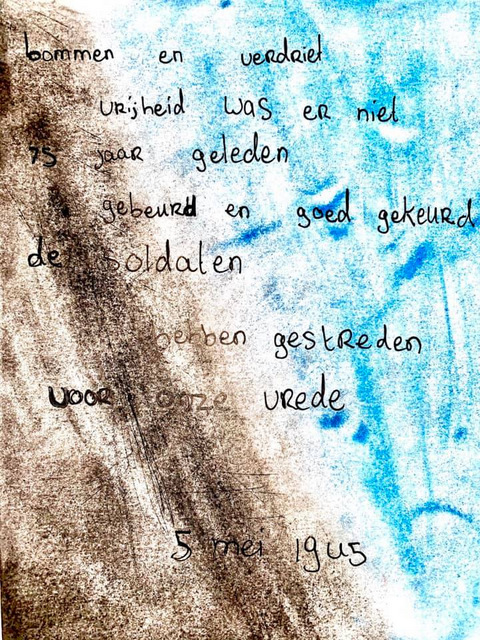 bommen en verdriet
vrijheid was er niet
75 jaar geleden
gebeurd en goed gekeurd
de soldaten
hebben gestreden
voor onze vrede
5 mei 1945